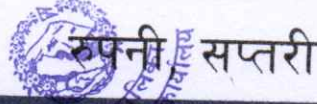 रुपनी, सप्तरी